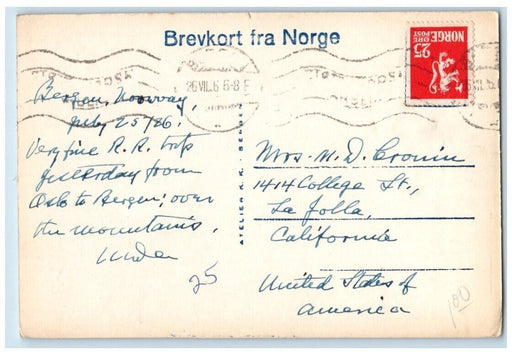 Brevkort fra Norge
NORGE
POST ØRE
25
26 VII. 6-8
Bergen, Norway,
July 25/26.
Very fine R. R. trip
yesterday from
Oslo to Bergen; over
the mountains.
25
ATELIER K.K. - BERGEN
Mrs. M. D. Cronin
1414 College St.,
La Jolla,
California
United States of
America
1.00